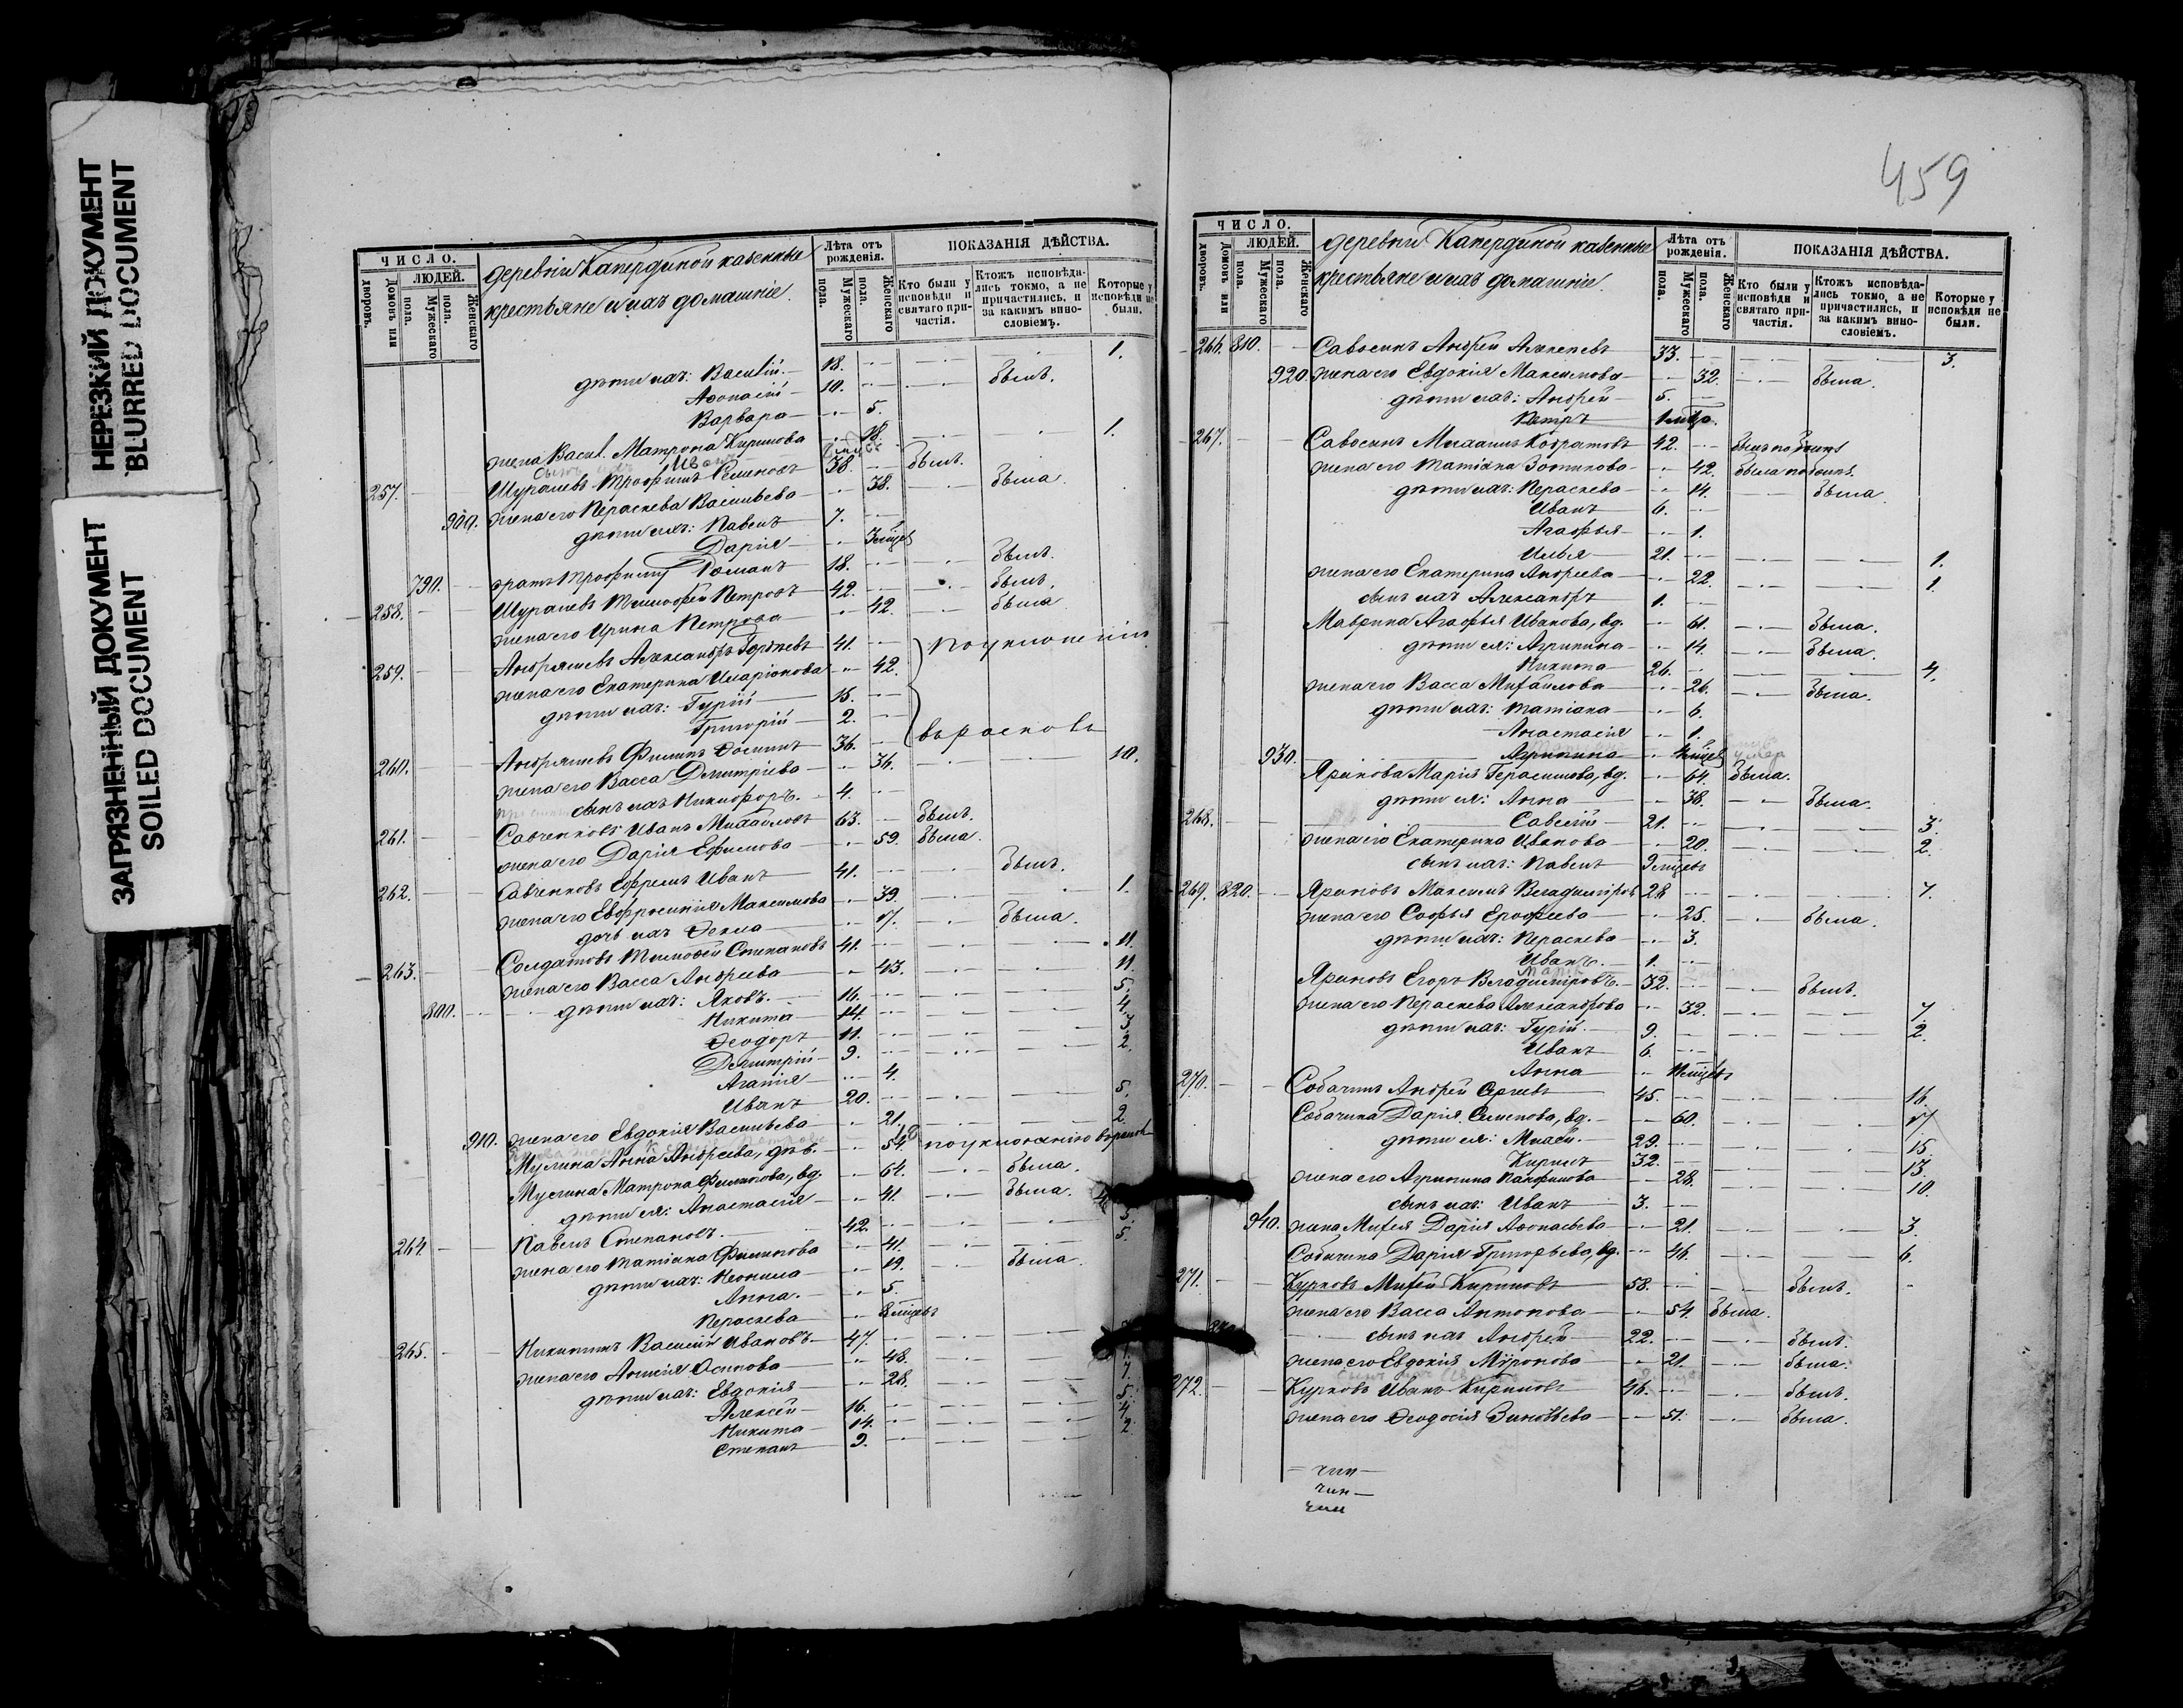 НЕРЕЗКИЙ ДОКУМЕНТ
BLURRED DOCUMENT
ЗАГРЯЗНЕННЫЙ ДОКУМЕНТ
SOILED DOCUMENT
ЧИСЛО.
ЛЮДЕЙ.
Домовъ или дворовъ.
Мужескаго пола.
Женскаго пола.
деревни Капердиной казенные
крестьяне и ихъ домашніе.
Лѣта отъ рожденія.
Мужескаго пола.
Женскаго пола.
ПОКАЗАНІЯ ДѢЙСТВА.
Кто были у исповѣди и святаго причастія.
Ктожъ исповѣдались токмо, а не причастились, и за какимъ винословіемъ.
Которые у исповѣди не были.
дѣти ихъ: Василій 18. 1.
Аѳонасій 10. былъ.
Варвара 5.
жена Васил. Матрона Кирилова 18. 1.
257. Шуралевъ Трофимъ Семеновъ 38. былъ.
900. жена его Пераскева Васильева 38. была.
дѣти ихъ: Павелъ 7.
Дарія
790. братъ Трофиму Романъ 18. былъ.
258. Шуралевъ Тимофей Петровъ 42. былъ.
жена его Ирина Петрова 42. была
259. Андряшевъ Александръ 41. по уклоненію
жена его Екатерина Иларіонова 42.
дѣти ихъ: Гурій 15.
Григорій 2. въ расколъ
260. Андряшевъ Филипъ 36. 10.
жена его Васса Дмитріева 36.
сынъ ихъ Никифоръ. 4.
261. Савченковъ Иванъ Михайловъ 63. былъ.
жена его Дарія Ефимова 59. была.
262. Савченковъ Ефремъ Иванъ 41. былъ.
жена его Евфросинія Максимова 39. 1.
дочь ихъ Ѳекла 17. была.
263. Солдатовъ Тимофей Степановъ 41. 11.
жена его Васса Андреева 43. 11.
800. дѣти ихъ: Яковъ. 16. 5.
Никита 14. 4.
Ѳеодоръ 11. 3.
Дмитрій 9. 2.
Агапія 4.
Иванъ 20. 5.
910. жена его Евдокія Васильева 21. 2.
Анна Андреева, дѣв. 54.
Матрона Филипова, вд. 64. была.
дѣти ея: Анастасія 41. была.
264. Павелъ Степановъ. 42. 5.
жена его Татіана Филипова 41. 5.
дѣти ихъ: Неонила 19. была.
Анна. 5.
Пераскева 8 мѣцевъ
265. Никитинъ Василій Ивановъ 47.
жена его Анисія Осипова 48.
дѣти ихъ: Евдокія 28. 7.
Алексѣй 16. 5.
Никита 14. 4.
Степанъ 9. 2.
459
ЧИСЛО.
ЛЮДЕЙ.
Домовъ или дворовъ.
Мужескаго пола.
Женскаго пола.
деревни Капердиной казенные
крестьяне и ихъ домашніе.
Лѣта отъ рожденія.
Мужескаго пола.
Женскаго пола.
ПОКАЗАНІЯ ДѢЙСТВА.
Кто были у исповѣди и святаго причастія.
Ктожъ исповѣдались токмо, а не причастились, и за какимъ винословіемъ.
Которые у исповѣди не были.
266. 810. Савосинъ Андрей 33. 3.
920. жена его Евдокія Максимова 32. была.
дѣти ихъ: Андрей 5.
Петръ
267. Савосинъ Михаилъ 42.
жена его Татіана Зотикова 42.
дѣти ихъ: Пераскева 14. была.
Иванъ 6.
Агафья 1.
Илья 21. 1.
жена его Екатерина Андреева 22. 1.
сынъ ихъ Александръ 1.
Маврина Агафья Иванова, вд. 61. была.
дѣти ея: Агрипина 14. была.
Никита 26. 4.
жена его Васса Михайлова 26. была.
дѣти ихъ: Татіана 6.
Анастасія 1.
930. Агрипина
Ярикова Марія Герасимова, вд. 64. была.
дѣти ея: Анна 38. была.
268. Савелій 21. 3.
жена его Екатерина Иванова 20. 2.
сынъ ихъ: Павелъ 9 мѣцевъ
269. 820. Яриковъ Максимъ Владиміровъ 28 7.
жена его Софья Ерофеева 25. была.
дѣти ихъ: Пераскева 3.
Иванъ. 1.
Яриковъ Егоръ Владиміровъ. 32. былъ.
жена его Пераскева Александрова 32. 7.
дѣти ихъ: Гурій. 9. 2.
Иванъ 6.
Анна
270. Собачинъ Андрей Сергѣевъ 45. 16.
Собачина Дарія Семенова, вд. 60. 17
дѣти ея: 29. 15.
Кирилъ 32. 13.
жена его Агрипина Панфилова 28. 10.
сынъ ихъ: Иванъ 3.
940. Дарія Аѳонасьева 21. 3.
Собачина Дарія Григорьева, вд. 46. 6.
271. Курковъ Михей Кириловъ 58. былъ.
жена его Васса Антонова 54. была.
сынъ ихъ Андрей 22. былъ.
жена его Евдокія Мѵронова 21. была.
272. Курковъ Иванъ Кириловъ 46. былъ.
жена его Ѳеодосія Зиновьева 51. была.